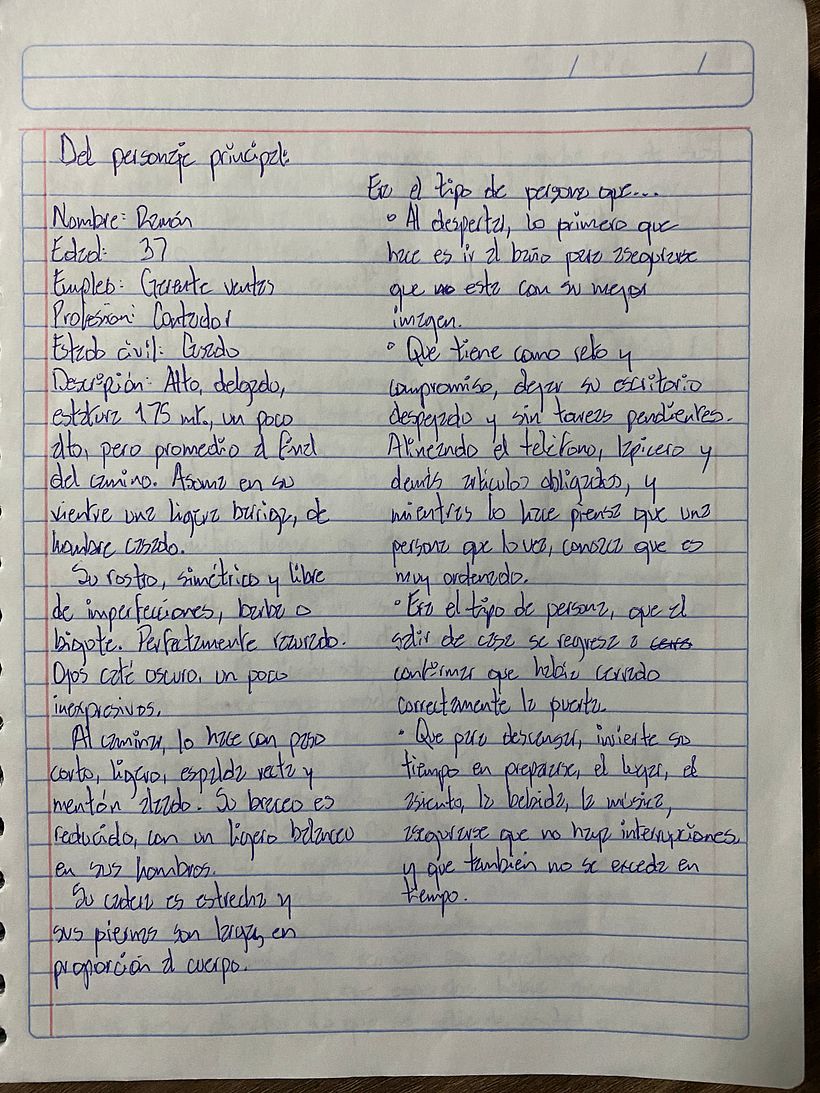 Del personaje principal:
Nombre: Ramón
Edad: 37
Empleo: Gerente ventas
Profesión: Contador
Estado civil: Casado
Descripión: Alto, delgado,
estatura 1.75 mt., un poco
alto, pero promedio al final
del camino. Asoma en su
vientre una ligera barriga, de
hombre casado.
Su rostro, simétrico y libre
de imperfecciones, barba o
bigote. Perfectamente rasurado.
Ojos café oscuro, un poco
inexpresivos.
Al caminar, lo hace con paso
corto, ligero, espalda recta y
mentón alzado. Su braceo es
reducido, con un ligero balanceo
en sus hombros.
Su cadera es estrecha y
sus piernas son largas, en
proporción al cuerpo.
Era el tipo de persona que...
• Al despertar, lo primero que
hace es ir al baño para asegurarse
que no esta con su mejor
imagen.
• Que tiene como reto y
compromiso, dejar su escritorio
despejado y sin tareas pendientes.
Alineando el teléfono, lapicero y
demás artículos obligados, y
mientras lo hace piensa que una
persona que lo vea, conozca que es
muy ordenado.
• Era el tipo de persona, que al
salir de casa se regresa a
confirmar que había cerrado
correctamente la puerta.
• Que para descansar, invierte su
tiempo en prepararse, el lugar, el
asiento, la bebida, la música,
asegurarse que no haya interrupciones
y que también no se exceda en
tiempo.